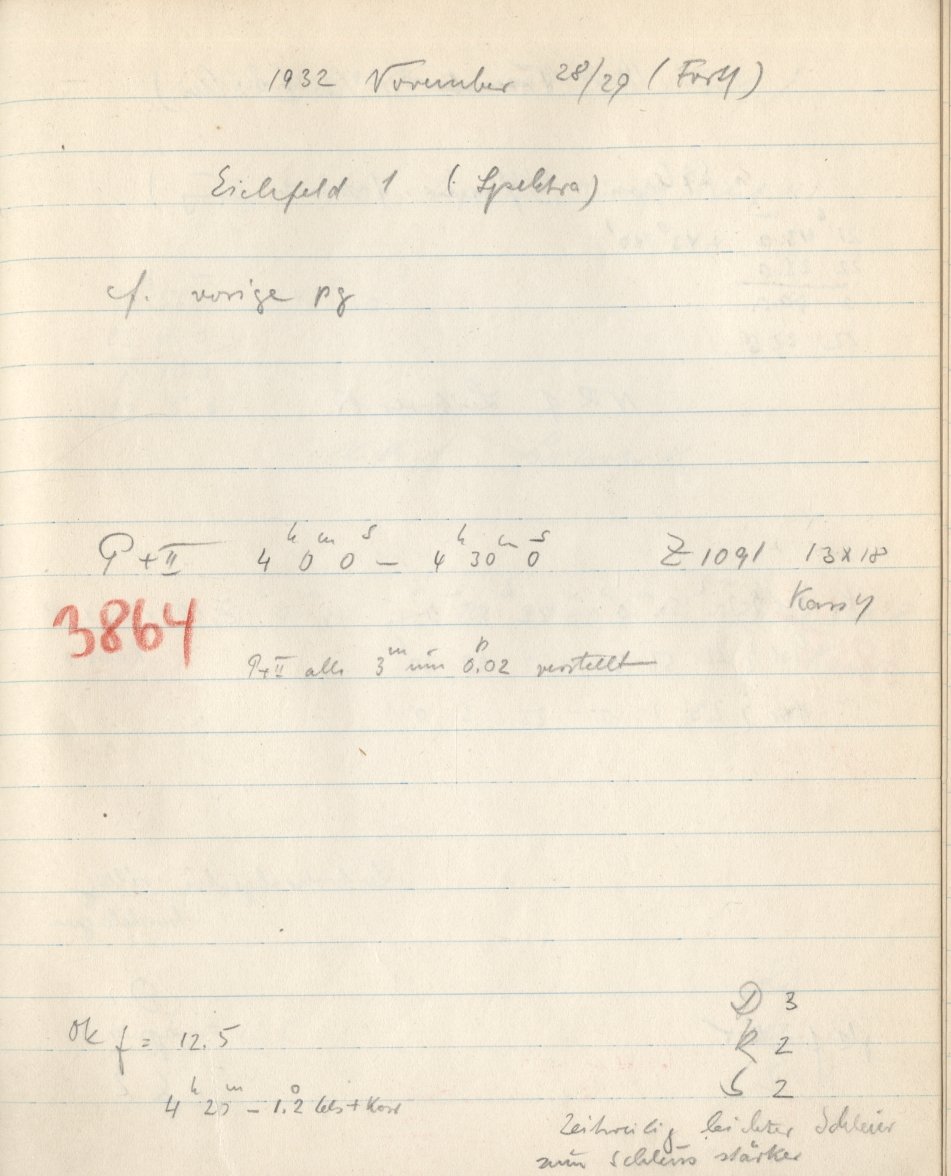 1932 November 28/29 (Forts)
Eichfeld 1 (Spektra)
cf. vorige pg
P+II 4h 0m 0s – 4h 30m 0s Z 1091 13x18
Kass 4
3864
P+II alle 3m um 0p.02 verstellt
Ok f = 12.5
D 3
R 2
S 2
4h 25m – 1°.2 Cels + Korr
Zeitweilig leichter Schleier
zum Schluss stärker